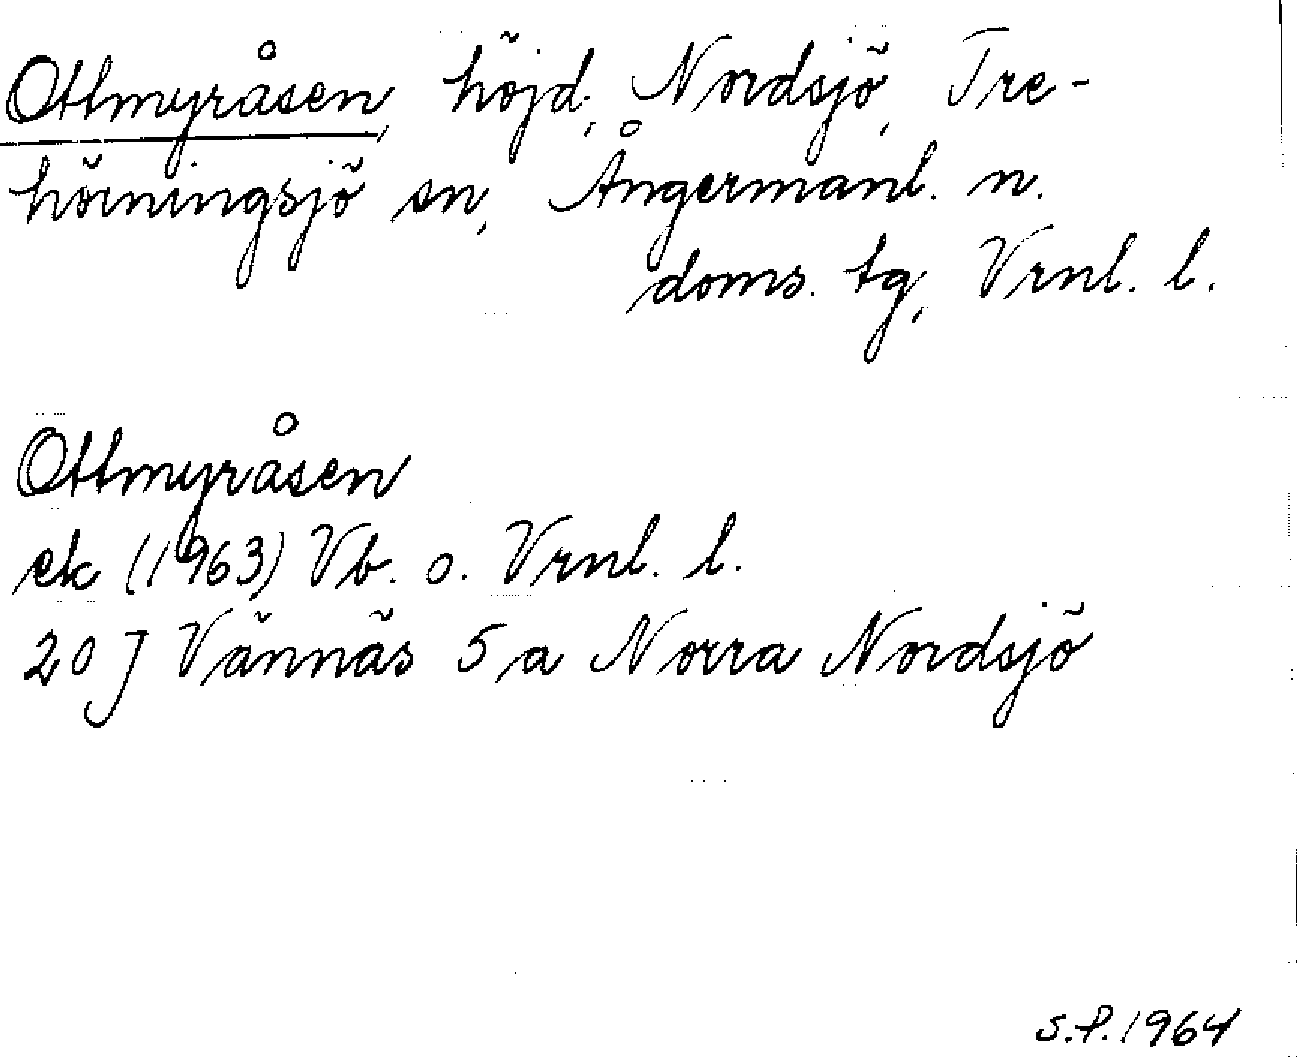 Ottmyråsen, höjd, Nordsjö, Tre-
hörningsjö sn, Ångermanl. n.
doms. tg, Vrnl. l.
Ottmyråsen
ek (1963) Vb. o. Vrnl. l.
20 J Vännäs 5 a Norra Nordsjö
S.P. 1964